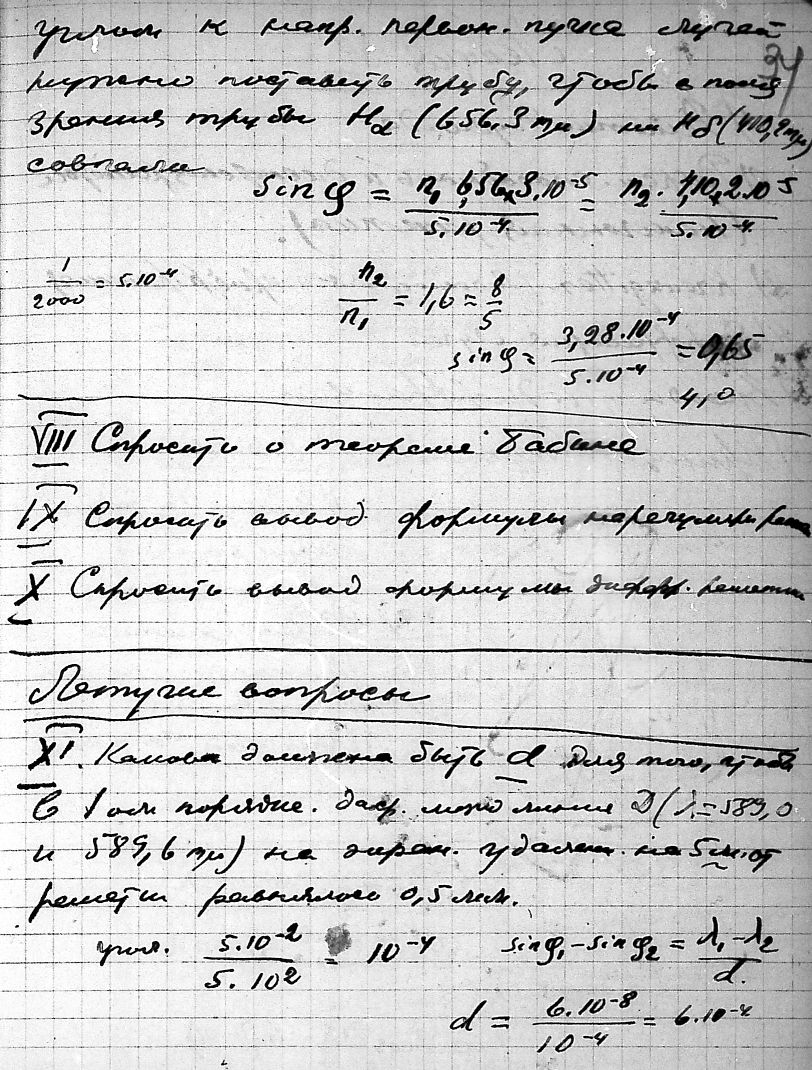 углом к напр. первон. пучка лучей
нужно поставить трубу, чтобы в поле
зрения трубы Hα (656,3 mμ) и Hδ (410,2 mμ)
совпали
sin φ = n₁ 656,3·10⁻⁵ / 5·10⁻⁴ = n₂ · 410,2·10⁻⁵ / 5·10⁻⁴
1/2000 = 5·10⁻⁴
n₂/n₁ = 1,6 = 8/5
sin φ = 3,28·10⁻⁴ / 5·10⁻⁴ = 0,65
4,0
VIII Спросить о теореме Бабине
IX Спросить вывод формулы нерегулярн. реш
X Спросить вывод формулы дифр. решетки
Летучие вопросы
XI. Какова должна быть d для того, чтобы
в 1ом порядке. между линия D (λ = 589,0
и 589,6 mμ) на экран. удален. на 5 м. от
решетки равнялось 0,5 мм.
угол. 5·10⁻² / 5·10² = 10⁻⁴ sin φ₁ – sin φ₂ = λ₁ – λ₂ / d.
d = 6·10⁻⁸ / 10⁻⁴ = 6·10⁻⁴